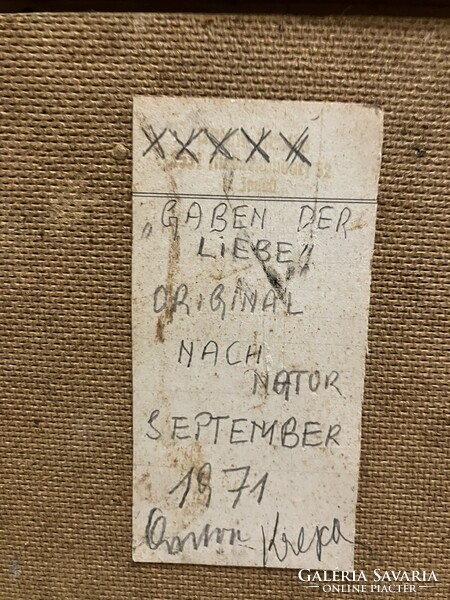 XXXXX
„GABEN DER
LIEBE"
ORIGINAL
NACH
NATUR
SEPTEMBER
1971
GALERIA SAVARIA
ONLINE PIACTÉR